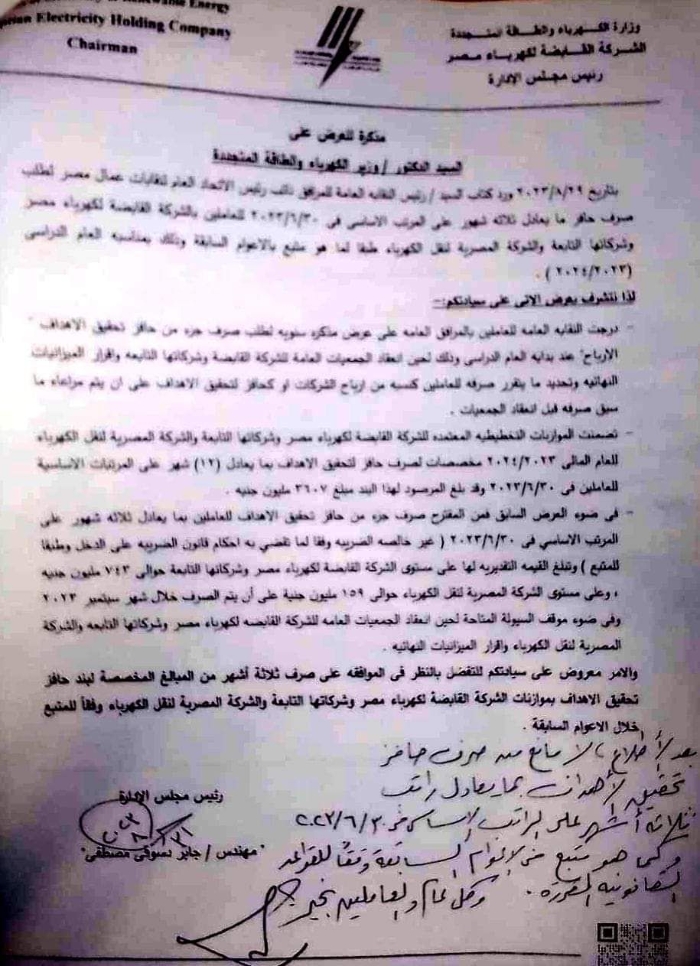 Renewable Energy
Egyptian Electricity Holding Company
Chairman
وزارة الكهرباء والطاقة المتجددة
الشركة القابضة لكهرباء مصر
رئيس مجلس الادارة
مذكرة للعرض على
السيد الدكتور / وزير الكهرباء والطاقة المتجددة
بتاريخ ٢٠٢٣/٨/٢٩ ورد كتاب السيد / رئيس النقابه العامة للمرافق نائب رئيس الاتحاد العام لنقابات عمال مصر لطلب
صرف حافز ما يعادل ثلاثه شهور على المرتب الاساسى فى ٢٠٢٣/٦/٣٠ للعاملين بالشركة القابضة لكهرباء مصر
وشركاتها التابعة والشركة المصرية لنقل الكهرباء طبقا لما هو متبع بالاعوام السابقة وذلك بمناسبه العام الدراسى
(٢٠٢٤/٢٠٢٣ ) .
لذا نتشرف بعرض الاتى على سيادتكم:-
- درجت النقابه العامه للعاملين بالمرافق العامه على عرض مذكره سنويه لطلب صرف جزء من حافز تحقيق الاهداف "
الارباح" عند بدايه العام الدراسى وذلك لحين انعقاد الجمعيات العامة للشركة القابضة وشركاتها التابعه واقرار الميزانيات
النهائيه وتحديد ما يتقرر صرفه للعاملين كنسبه من ارباح الشركات او كحافز لتحقيق الاهداف على ان يتم مراعاه ما
سبق صرفه قبل انعقاد الجمعيات .
- تضمنت الموازنات التخطيطيه المعتمده للشركة القابضة لكهرباء مصر وشركاتها التابعة والشركة المصرية لنقل الكهرباء
للعام المالى ٢٠٢٤/٢٠٢٣ مخصصات لصرف حافز لتحقيق الاهداف بما يعادل (١٢) شهر على المرتبات الاساسية
للعاملين فى ٢٠٢٣/٦/٣٠ وقد بلغ المرصود لهذا البند مبلغ ٣٦٠٧ مليون جنيه .
- فى ضوء العرض السابق فمن المقترح صرف جزء من حافز تحقيق الاهداف للعاملين بما يعادل ثلاثه شهور على
المرتب الاساسى فى ٢٠٢٣/٦/٣٠ ( غير خالصه الضريبه وفقا لما تقضي به احكام قانون الضريبه على الدخل وطبقا
للمتبع ) وتبلغ القيمه التقديريه لها على مستوى الشركة القابضة لكهرباء مصر وشركاتها التابعة حوالى ٧٤٣ مليون جنيه
، وعلى مستوى الشركة المصرية لنقل الكهرباء حوالى ١٥٩ مليون جنية على أن يتم الصرف خلال شهر سبتمبر ٢٠٢٣
وفى ضوء موقف السيولة المتاحة لحين انعقاد الجمعيات العامه للشركة القابضه لكهرباء مصر وشركاتها التابعه والشركة
المصرية لنقل الكهرباء واقرار الميزانيات النهائيه .
والامر معروض على سيادتكم للتفضل بالنظر فى الموافقه على صرف ثلاثة أشهر من المبالغ المخصصة لبند حافز
تحقيق الاهداف بموازنات الشركة القابضة لكهرباء مصر وشركاتها التابعة والشركة المصرية لنقل الكهرباء وفقاً للمتبع
خلال الاعوام السابقة .
بعد الاطلاع ، لا مانع من صرف حافز
تحقيق الأهداف بما يعادل راتب
ثلاثة أشهر على الراتب الأساسى فى ٢٠٢٣/٦/٣٠
وكما هو متبع فى الأعوام السابقة وفقاً للقواعد
القانونية المقررة . وكل عام والعاملين بخير
رئيس مجلس الإدارة
"مهندس / جابر دسوقى مصطفى"